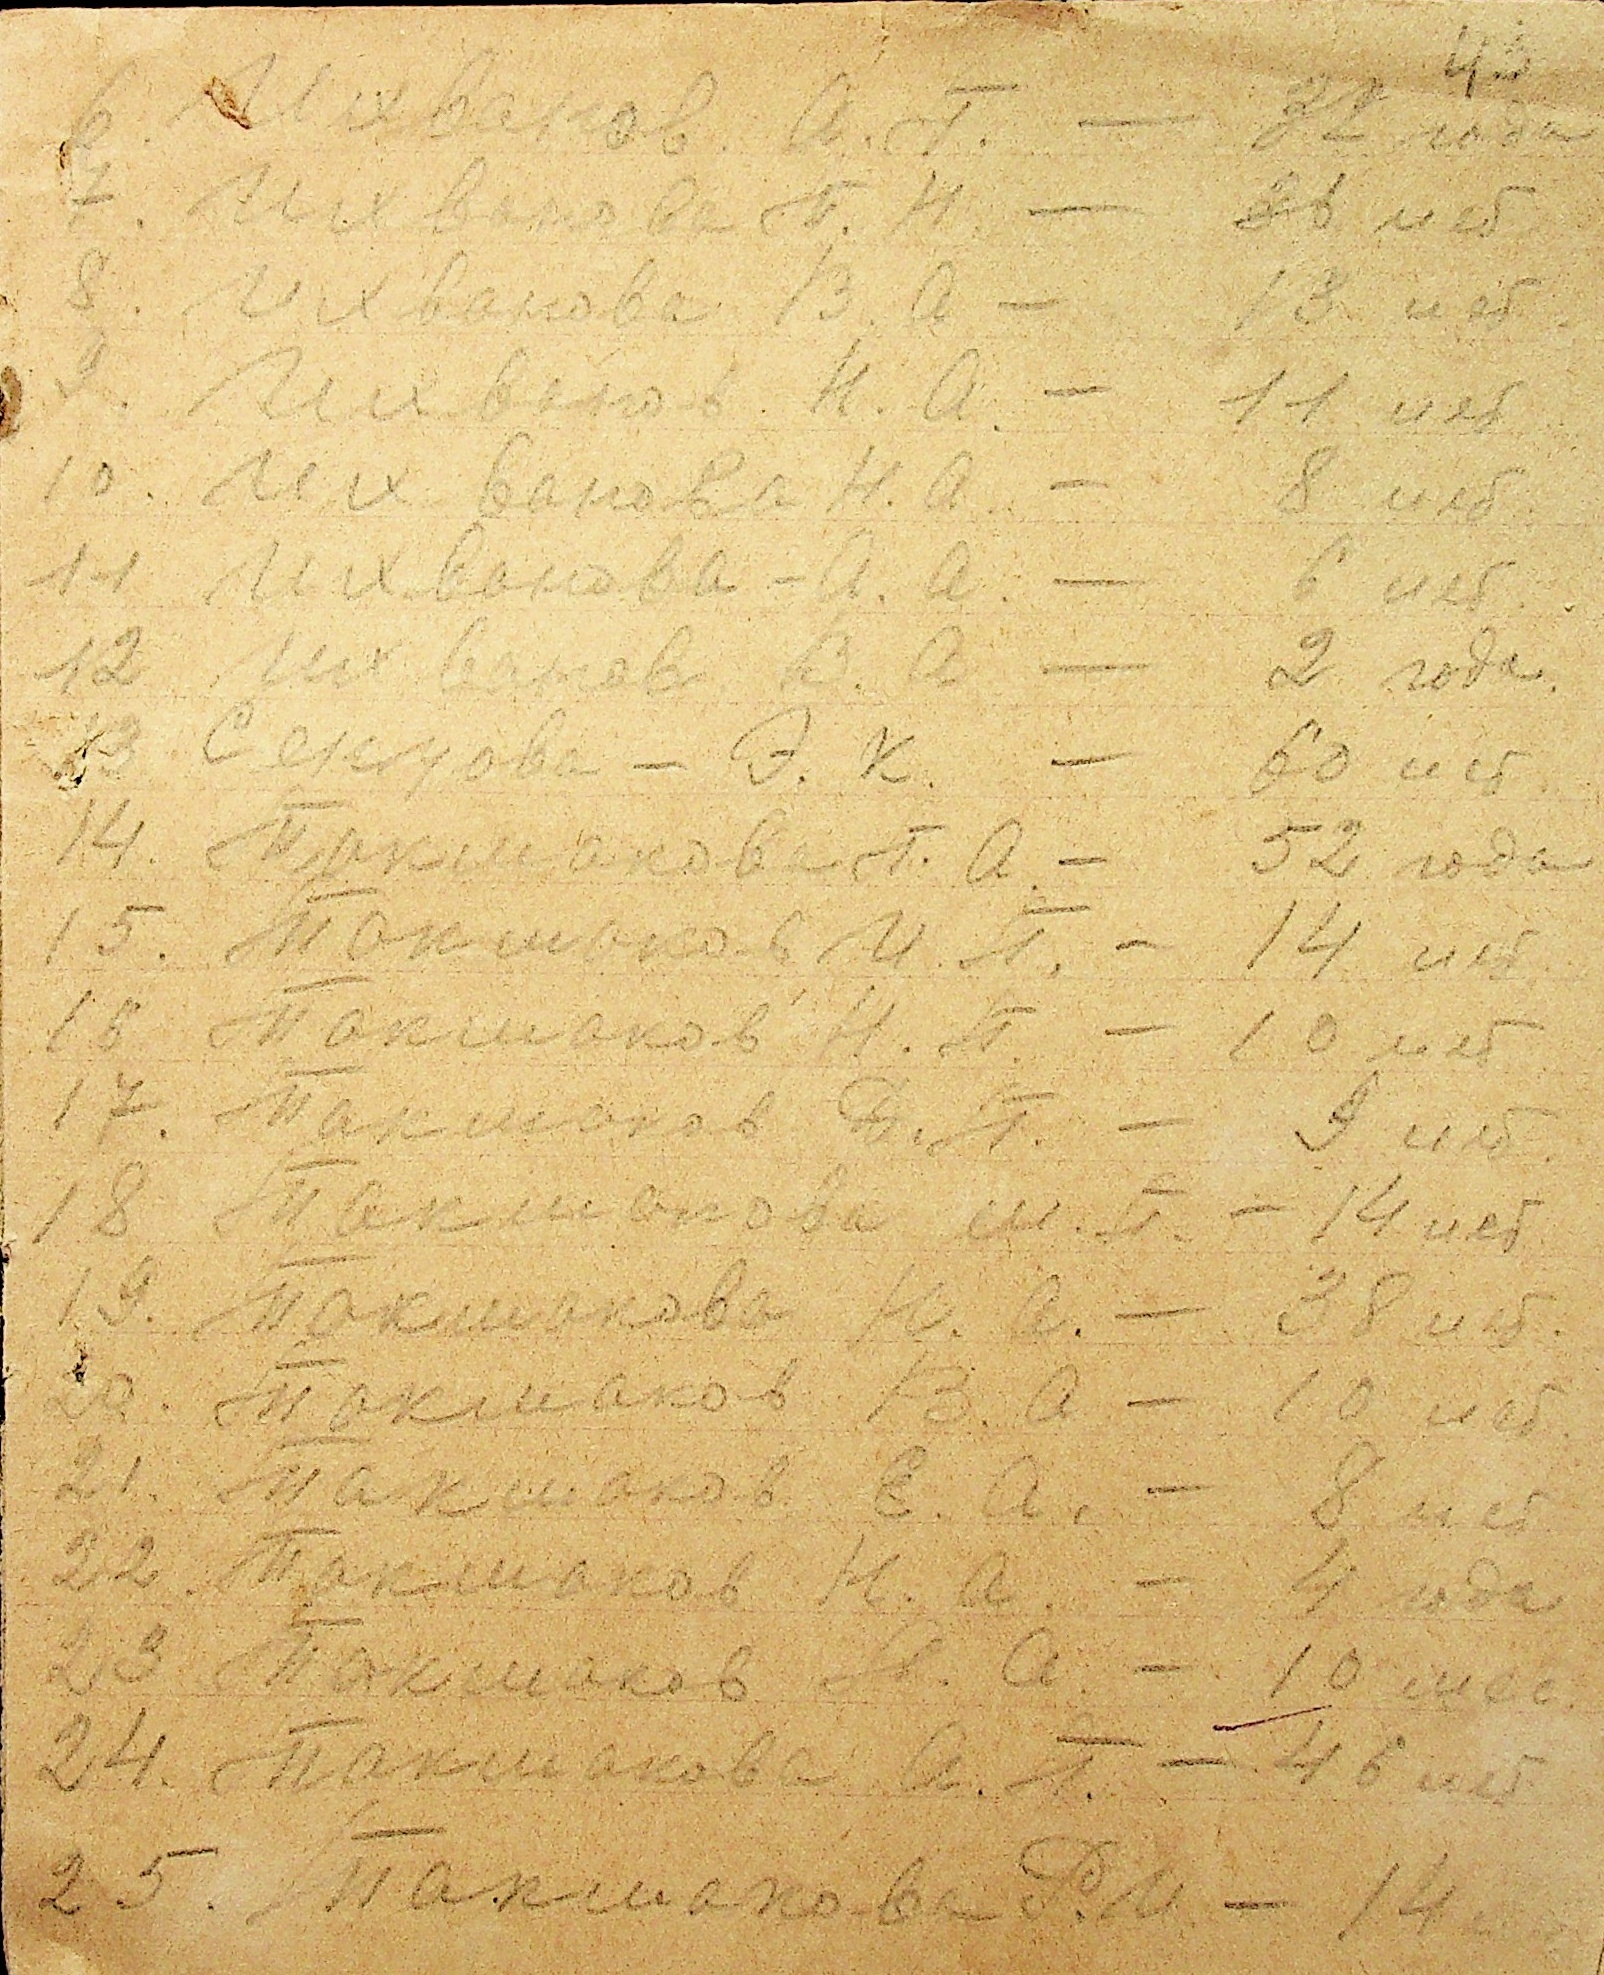 43
6. Михванов А. П. — 32 года
7. Михванова П. Н. — 36 лет
8. Михванова В. А — 13 лет.
9. Михванов Н. А. — 11 лет
10. Михванова Н. А. — 8 лет.
11 Михванова - А. А. — 6 лет.
12 Михванов В. А — 2 года.
13 — Э. К. — 60 лет.
14. Такмакова П. А. — 52 года
15. Такмаков И. П. — 14 лет.
16 Такмаков Н. П. — 10 лет
17. Такмаков П. — 9 лет.
18 Такмакова М. П. — 14 лет
19. Такмакова Н. А. — 38 лет.
20. Такмаков В. А — 10 лет.
21. Такмаков Е. А. — 8 лет
22 Такмаков Н. А. — 4 года
23 Такмаков П. А. — 10 мес.
24. Такмакова А. П. — 46 лет
25. Такмакова И — 14